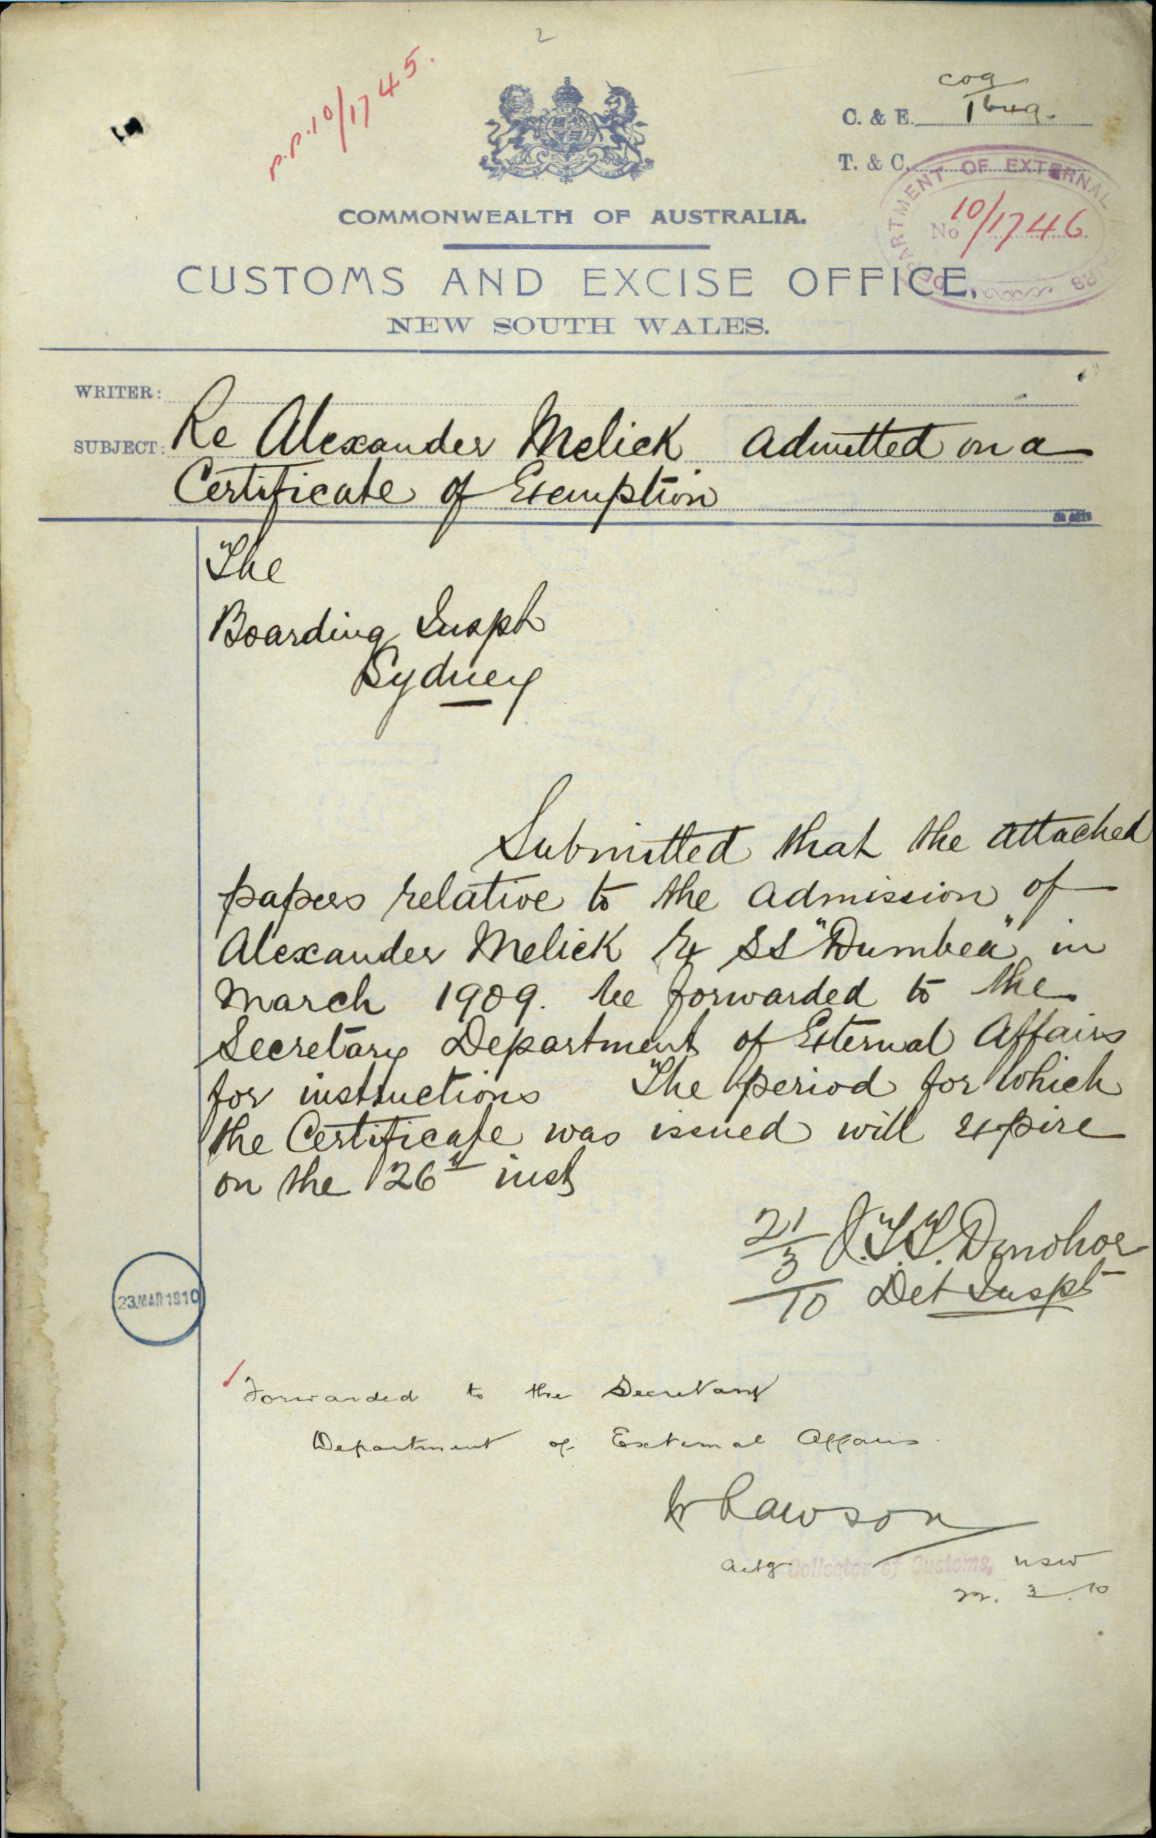 2
p.p. 10/1745.
C. & E.
T. & C.
DEPARTMENT OF EXTERNAL AFFAIRS
No 10/1746
COMMONWEALTH OF AUSTRALIA.
CUSTOMS AND EXCISE OFFICE,
NEW SOUTH WALES.
WRITER:
SUBJECT: Re Alexander Melick admitted on a
Certificate of Exemption
The
Boarding Inspt
Sydney
Submitted that the attached
papers relative to the admission of
Alexander Melick Ex SS "Dumbea" in
March 1909. be forwarded to the
Secretary Department of External Affairs
for instructions The period for which
the Certificate was issued will expire
on the 26th inst
21/3/10 J.T.T. Donohoe
Det Inspt
23.MAR 1910
Forwarded to the Secretary
Department of External Affairs.
W Lawson
Actg Collector of Customs, NSW
22.3.10